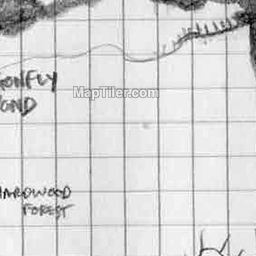 ONFLY
OND
MapTiler.com
HARDWOOD
FOREST